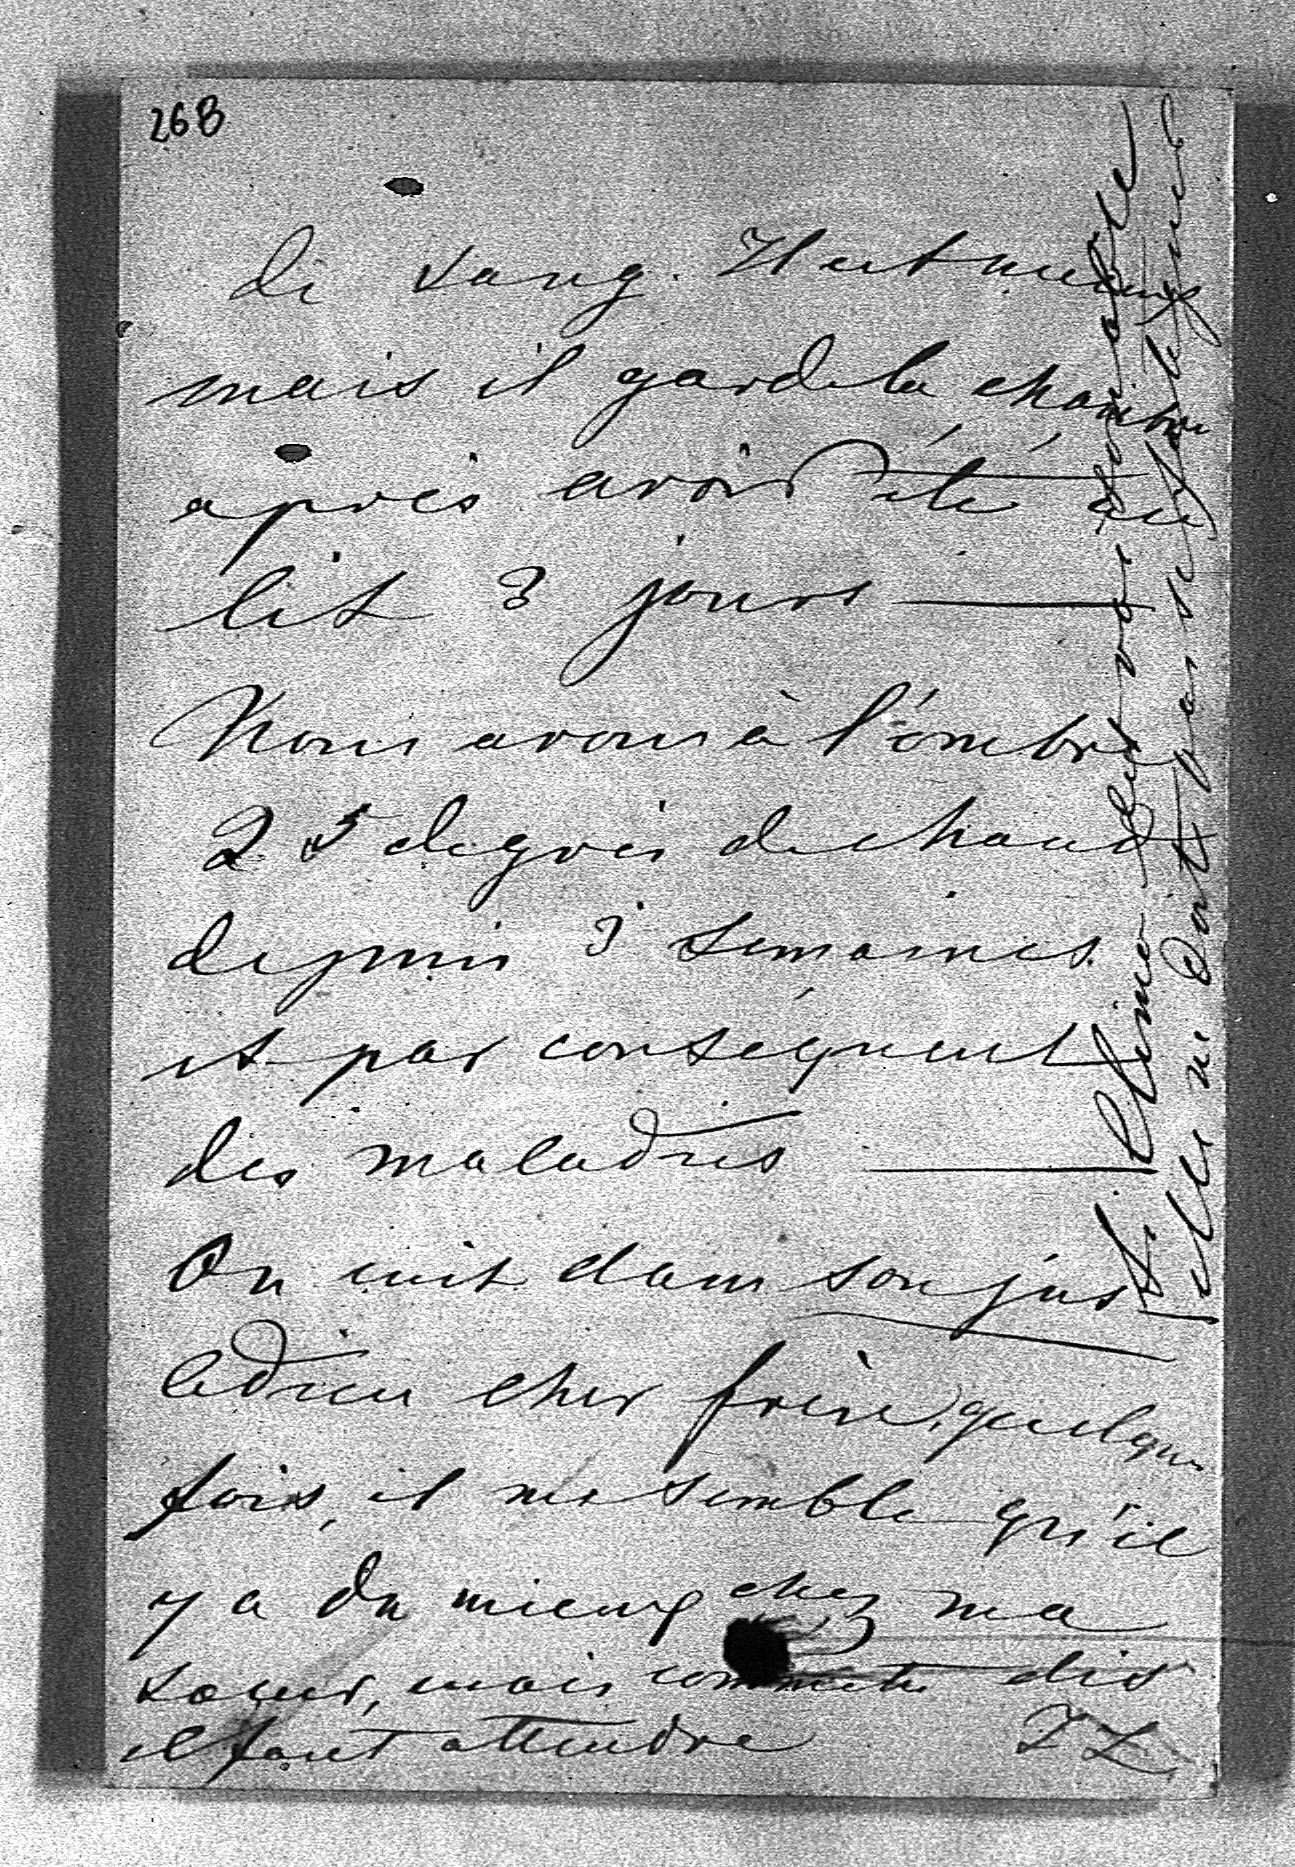 268
de sang. Il est mieux
mais il garde la chambre
après avoir été au
lit 3 jours —
Nous avons à l'ombre
25 degrés de chaud
depuis 3 semaines
et par conséquent
des maladies —
On cuit dans son jus
Adieu cher frère, quelque
fois, il me semble qu'il
y a du mieux chez ma
soeur, mais comme tu dis
il faut attendre
elle ne doit pas se